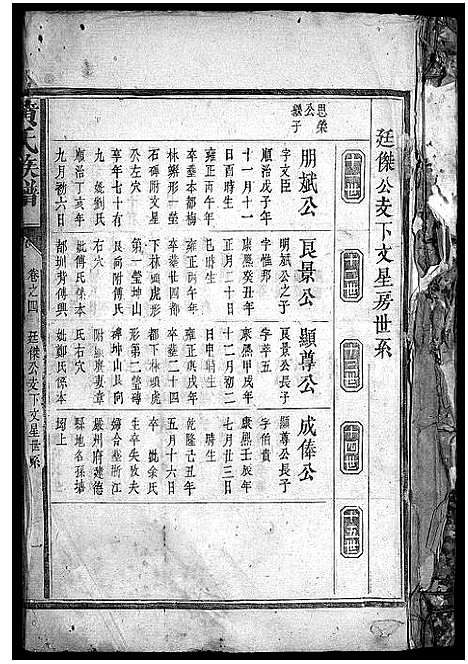 廷傑公支下文星房世系
十一世
十二世
十三世
十四世
十五世
思榮
公
繼子
朋斌公
字文臣
順治戊子年
十一月十一
日酉時生
雍正丙午年
卒葬本都梅
林獅形一塋
石碑附文星
公左穴
卒年七十有
九 妣劉氏
順治丁亥年
九月初六日
良景公
朋斌公之子
字惟邦
康熙癸丑年
正月二十日
時生
雍正丙午年
卒葬廿四都
下林頭虎形
第一塋坤山
艮向附傅氏
右穴
妣傅氏係本
都圳背傅興
顯尊公
良景公長子
字華五
康熙甲戌年
十二月初二
日申時生
乾隆戊午年
卒葬二十四
都下林頭虎
形第二塋磚
碑坤山艮向
附與東妻章
氏右穴
妣鄭氏係本
成俸公
顯尊公長子
字伯貴
康熙壬辰年
七月廿三日
時生
乾隆己丑年
五月十六日
卒 妣余氏
生卒失攷夫
婦合葬浙江
嚴州府建德
縣地名孫塘
塢上
黃氏族譜
卷之四
廷傑公支下文星世系
一